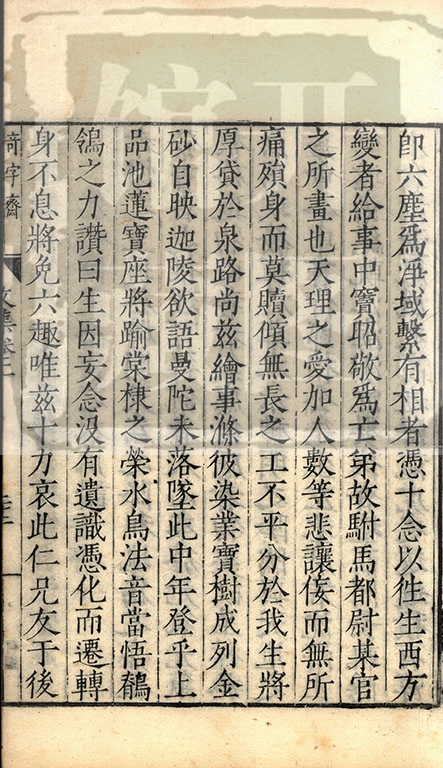 即六塵爲淨域繫有相者憑十念以徃生西方
變者給事中竇昭敬爲亡弟故駙馬都尉某官
之所畫也天理之愛加人數等悲讓侫而無所
痛殞身而莫贖傾無長之工不平分於我生將
厚貸於泉路尚兹繪事滌彼染業寶樹成列金
砂自映迦陵欲語曼陀未落墜此中年登乎上
品池蓮寶座將踰棠棣之榮水鳥法音當悟鶺
鴒之力讚曰生因妄念没有遺識憑化而遷轉
身不息將免六趣唯兹十力哀此仁兄友于後
奇字齋
文集卷二